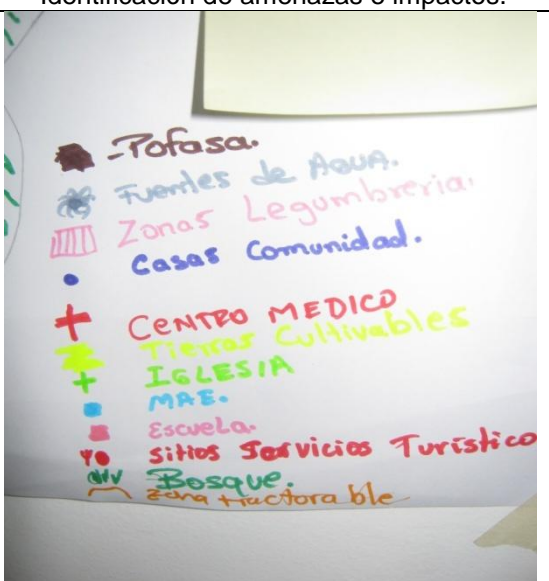 Identificación de amenazas e impactos.
-Pofasa.
Fuentes de AGUA.
Zonas Legumbreria.
Casas Comunidad.
CENTRO MEDICO
Tierras Cultivables
IGLESIA
MAE.
Escuela.
sitios Servicios Turístico
Bosque.
zona tractorable